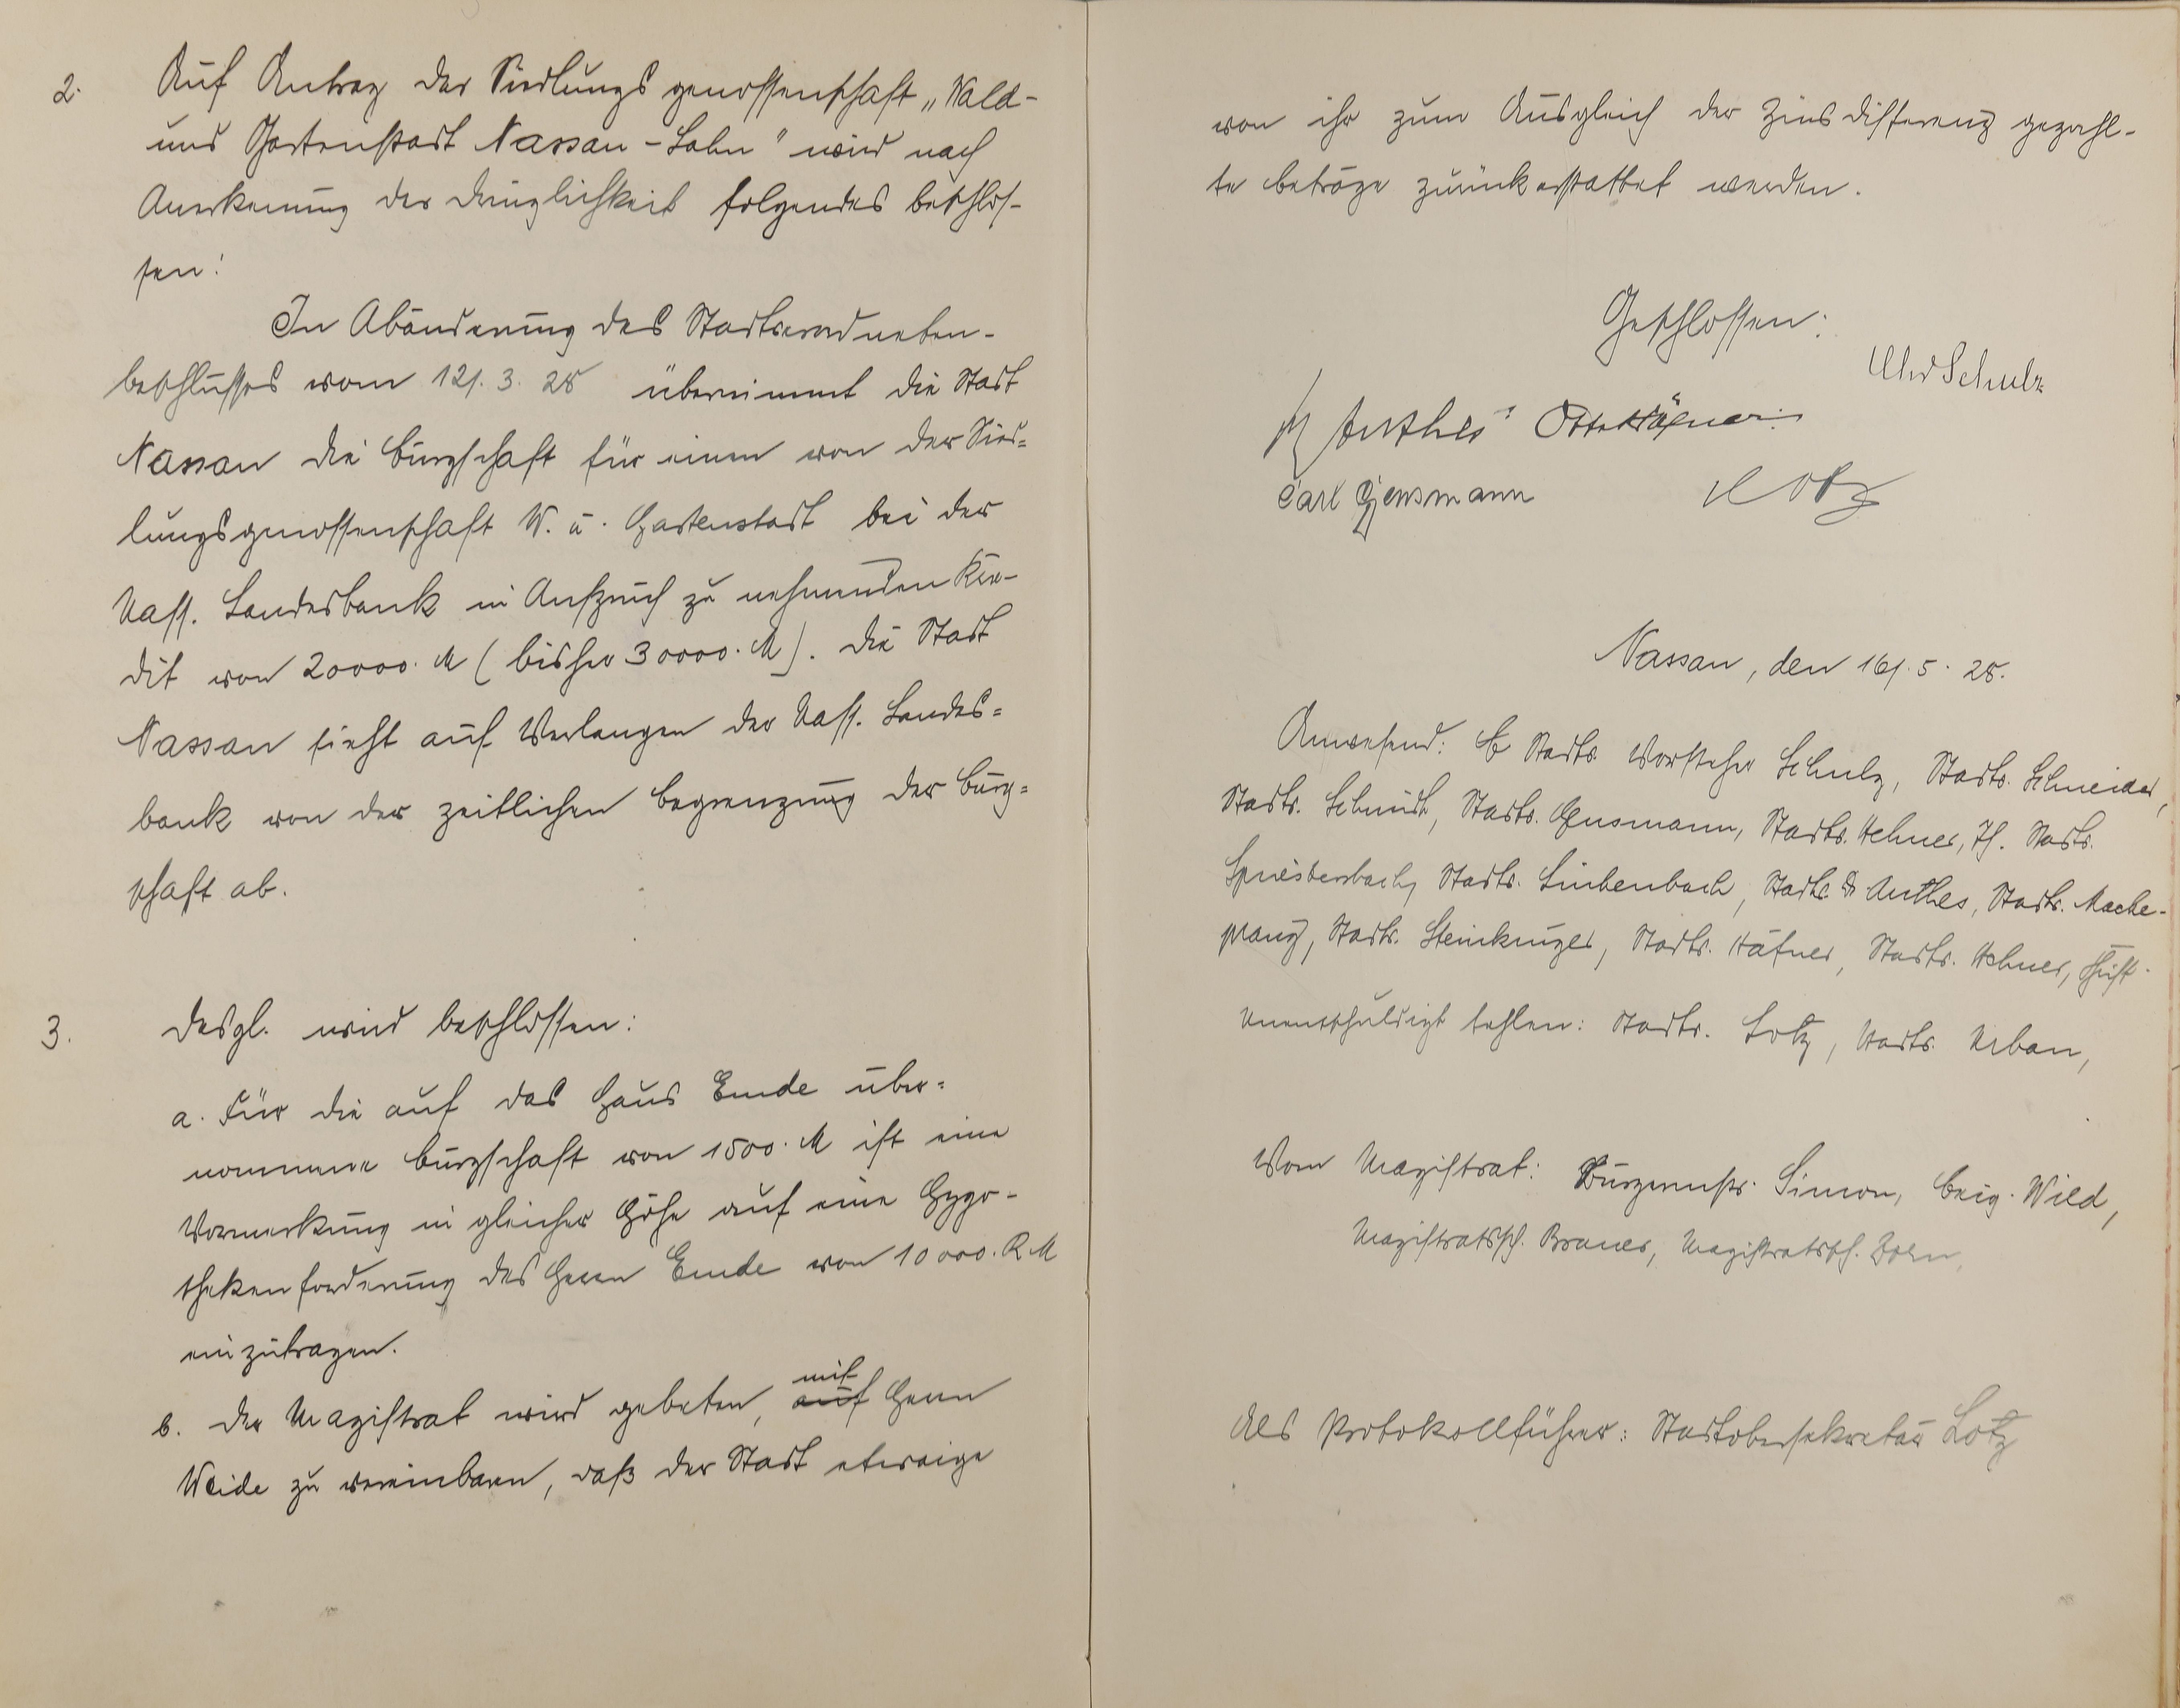 2. Auf Antrag der Siedlungsgenossenschaft „Wald-
und Gartenstadt Nassau-Lahn" wird nach
Anerkennung der Dringlichkeit folgendes beschlos-
sen:
In Abänderung des Stadtverordneten-
beschlusses vom 12/. 3. 28 übernimmt die Stadt
Nassau die Bürgschaft für einen von der Sied=
lungsgenossenschaft W. u. Gartenstadt bei der
Nass. Landesbank in Anspruch zu nehmenden Kre-
dit von 20000. M (bisher 30000. M). Die Stadt
Nassau sieht auf Verlangen der Nass. Landes=
bank von der zeitlichen Begrenzung der Bürg=
schaft ab.
3. Desgl. wird beschlossen:
a. Für die auf das Haus Emde über=
nommene Bürgschaft von 1500. M ist eine
Vormerkung in gleicher Höhe auf eine Hypo-
thekenforderung des Herrn Emde von 10000. RM
einzutragen.
b. Der Magistrat wird gebeten, auf mit Herrn
Weide zu vereinbaren, daß der Stadt etwaige
von ihr zum Ausgleich der Zinsdifferenz gezahl-
te Beträge zurückerstattet werden.
Geschlossen:
Schulz
Anthes Otto Häfner
Carl Gensmann Lotz
Nassau, den 16/. 5. 28.
Anwesend: Stadtv. Vorsteher Schulz, Stadtv. Schneider,
Stadtv. Schmidt, Stadtv. Gensmann, Stadtv. Hehner, Th. Stadtv.
Spriesterbach, Stadtv. Linkenbach, Stadtv. Dr Anthes, Stadtv. Mache-
prang, Stadtv. Steinkrüger, Stadtv. Häfner, Stadtv. Hehner, Gust.
Unentschuldigt fehlen: Stadtv. Lotz, Stadtv. Urban,
Vom Magistrat: Bürgermstr. Simon, Beig. Wild,
Magistratssch. Brauer, Magistratssch. Born,
Als Protokollführer: Stadtobersekretär Lotz